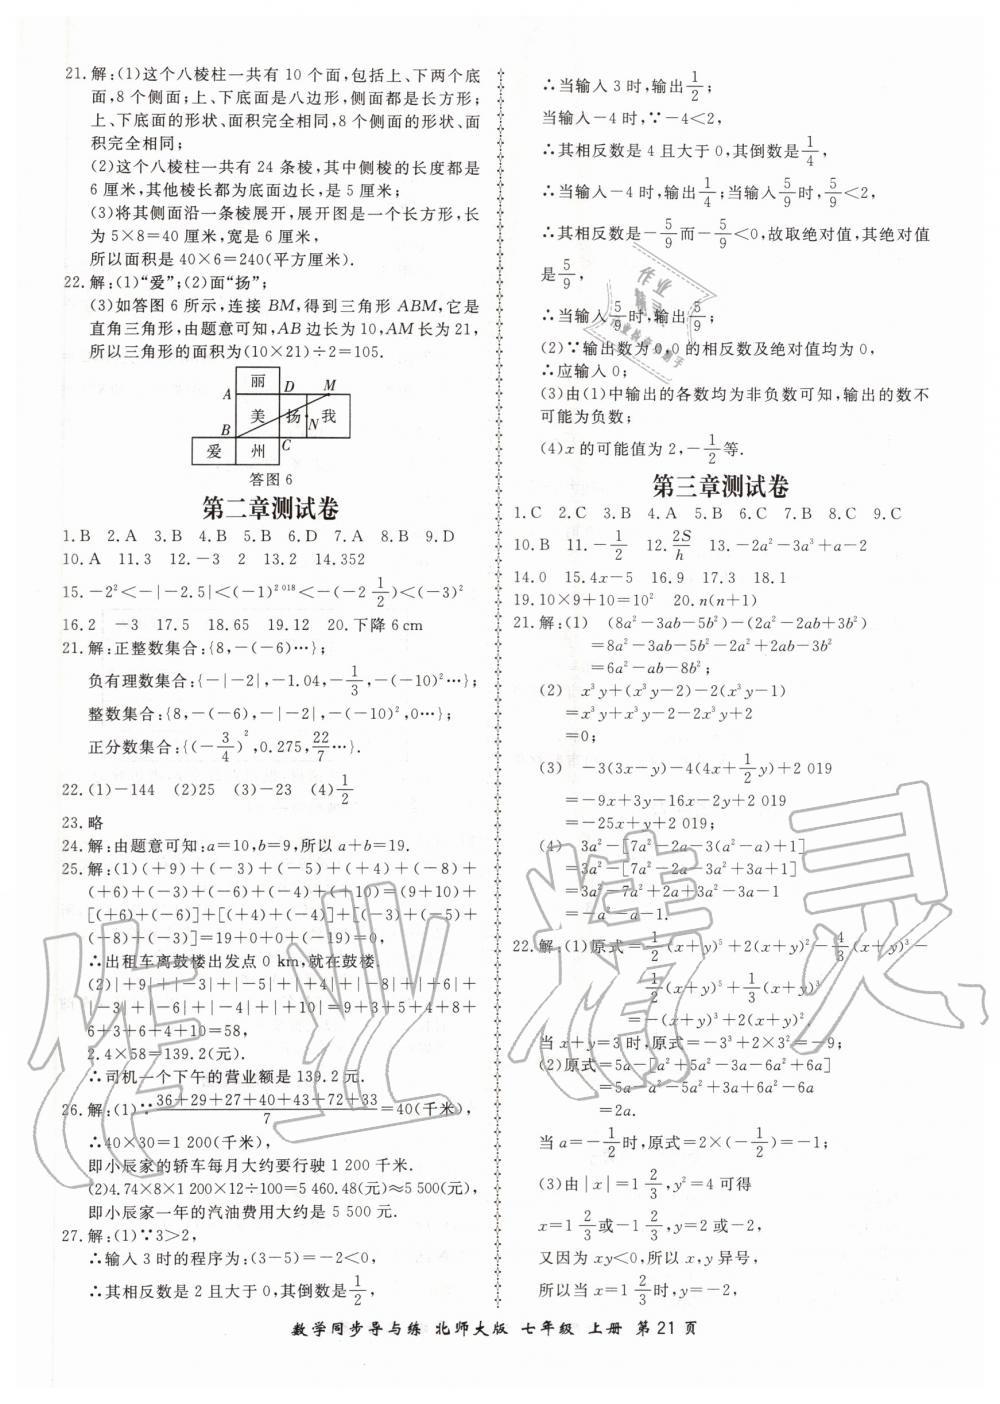 21.解:(1)这个八棱柱一共有 10 个面,包括上、下两个底
面,8 个侧面;上、下底面是八边形,侧面都是长方形;
上、下底面的形状、面积完全相同,8 个侧面的形状、面
积完全相同;
(2)这个八棱柱一共有 24 条棱,其中侧棱的长度都是
6 厘米,其他棱长都为底面边长,是 5 厘米;
(3)将其侧面沿一条棱展开,展开图是一个长方形,长
为 5×8=40 厘米,宽是 6 厘米,
所以面积是 40×6=240(平方厘米).
22.解:(1)“爱”;(2)面“扬”;
(3)如答图 6 所示,连接 BM,得到三角形 ABM,它是
直角三角形,由题意可知,AB 边长为 10,AM 长为 21,
所以三角形的面积为(10×21)÷2=105.
丽 D M
A
美 扬 N 我
B C
爱 州
答图 6
第二章测试卷
1.B 2.A 3.B 4.B 5.B 6.D 7.A 8.B 9.D
10.A 11.3 12.-3 2 13.2 14.352
15.-2²<-|-2.5|<(-1)²⁰¹⁸<-(-2 1/2)<(-3)²
16.2 -3 17.5 18.65 19.12 20.下降6 cm
21.解:正整数集合:{8,-(-6)…};
负有理数集合:{-|-2|,-1.04,-1/3,-(-10)²…};
整数集合:{8,-(-6),-|-2|,-(-10)²,0…};
正分数集合:{(-3/4)²,0.275,22/7…}.
22.(1)-144 (2)25 (3)-23 (4)1/2
23.略
24.解:由题意可知:a=10,b=9,所以 a+b=19.
25.解:(1)(+9)+(-3)+(-5)+(+4)+(-8)+
(+6)+(-3)+(-6)+(-4)+(+10)=(9+10)+
[(+6)+(-6)]+[(+4)+(-4)]+[(-3)+(-5)+
(-8)+(-3)]=19+0+0+(-19)=0,
∴出租车离鼓楼出发点 0 km,就在鼓楼.
(2)|+9|+|-3|+|-5|+|+4|+|-8|+|+6|+
|-3|+|-6|+|-4|+|+10|=9+3+5+4+8+
6+3+6+4+10=58,
2.4×58=139.2(元).
∴司机一个下午的营业额是 139.2 元.
26.解:(1)∵(36+29+27+40+43+72+33)/7=40(千米),
∴40×30=1 200(千米),
即小辰家的轿车每月大约要行驶 1 200 千米.
(2)4.74×8×1 200×12÷100=5 460.48(元)≈5 500(元),
即小辰家一年的汽油费用大约是 5 500 元.
27.解:(1)∵3>2,
∴输入 3 时的程序为:(3-5)=-2<0,
∴其相反数是 2 且大于 0,其倒数是1/2,
∴当输入 3 时,输出1/2;
当输入-4 时,∵-4<2,
∴其相反数是 4 且大于 0,其倒数是1/4,
∴当输入-4 时,输出1/4;当输入5/9时,5/9<2,
∴其相反数是-5/9而-5/9<0,故取绝对值,其绝对值
是5/9,
∴当输入5/9时,输出5/9;
(2)∵输出数为 0,0 的相反数及绝对值均为 0,
∴应输入 0;
(3)由(1)中输出的各数均为非负数可知,输出的数不
可能为负数;
(4)x 的可能值为 2,-1/2等.
第三章测试卷
1.C 2.C 3.B 4.A 5.B 6.C 7.B 8.C 9.C
10.B 11.-1/2 12.2S/h 13.-2a²-3a³+a-2
14.0 15.4x-5 16.9 17.3 18.1
19.10×9+10=10² 20.n(n+1)
21.解:(1) (8a²-3ab-5b²)-(2a²-2ab+3b²)
=8a²-3ab-5b²-2a²+2ab-3b²
=6a²-ab-8b²;
(2) x³y+(x³y-2)-2(x³y-1)
=x³y+x³y-2-2x³y+2
=0;
(3) -3(3x-y)-4(4x+1/2y)+2 019
=-9x+3y-16x-2y+2 019
=-25x+y+2 019;
(4) 3a²-[7a²-2a-3(a²-a)+1]
=3a²-[7a²-2a-3a²+3a+1]
=3a²-7a²+2a+3a²-3a-1
=-a²-a-1.
22.解:(1)原式=1/2(x+y)⁵+2(x+y)²-4/3(x+y)³-
1/2(x+y)⁵+1/3(x+y)³
=-(x+y)³+2(x+y)².
当 x+y=3 时,原式=-3³+2×3²=-9;
(2)原式=5a-[a²+5a²-3a-6a²+6a]
=5a-a²-5a²+3a+6a²-6a
=2a.
当 a=-1/2时,原式=2×(-1/2)=-1;
(3)由|x|=1 2/3,y²=4 可得
x=1 2/3或-1 2/3,y=2 或-2,
又因为 xy<0,所以 x,y 异号,
所以当 x=1 2/3时,y=-2,
数学同步导与练 北师大版 七年级 上册 第 21 页
作业精灵